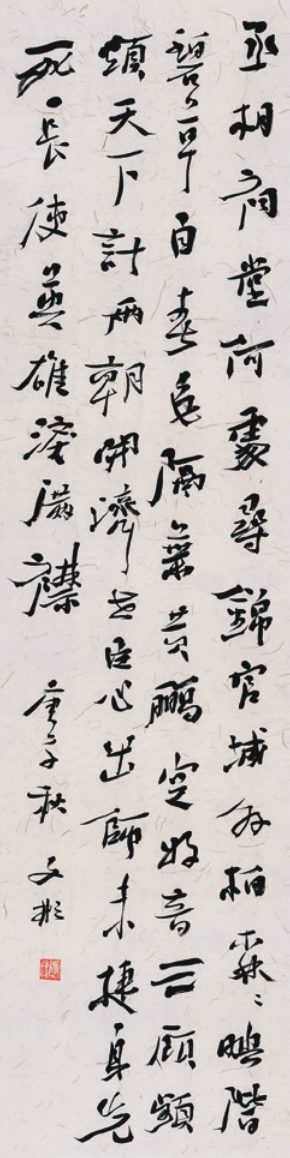 丞相祠堂何處尋錦官城外柏森〻映階
碧草自春色隔葉黄鸝空好音三顧頻
煩天下計兩朝開濟老臣心出師未捷身先
死長使英雄淚滿襟 庚子秋 文